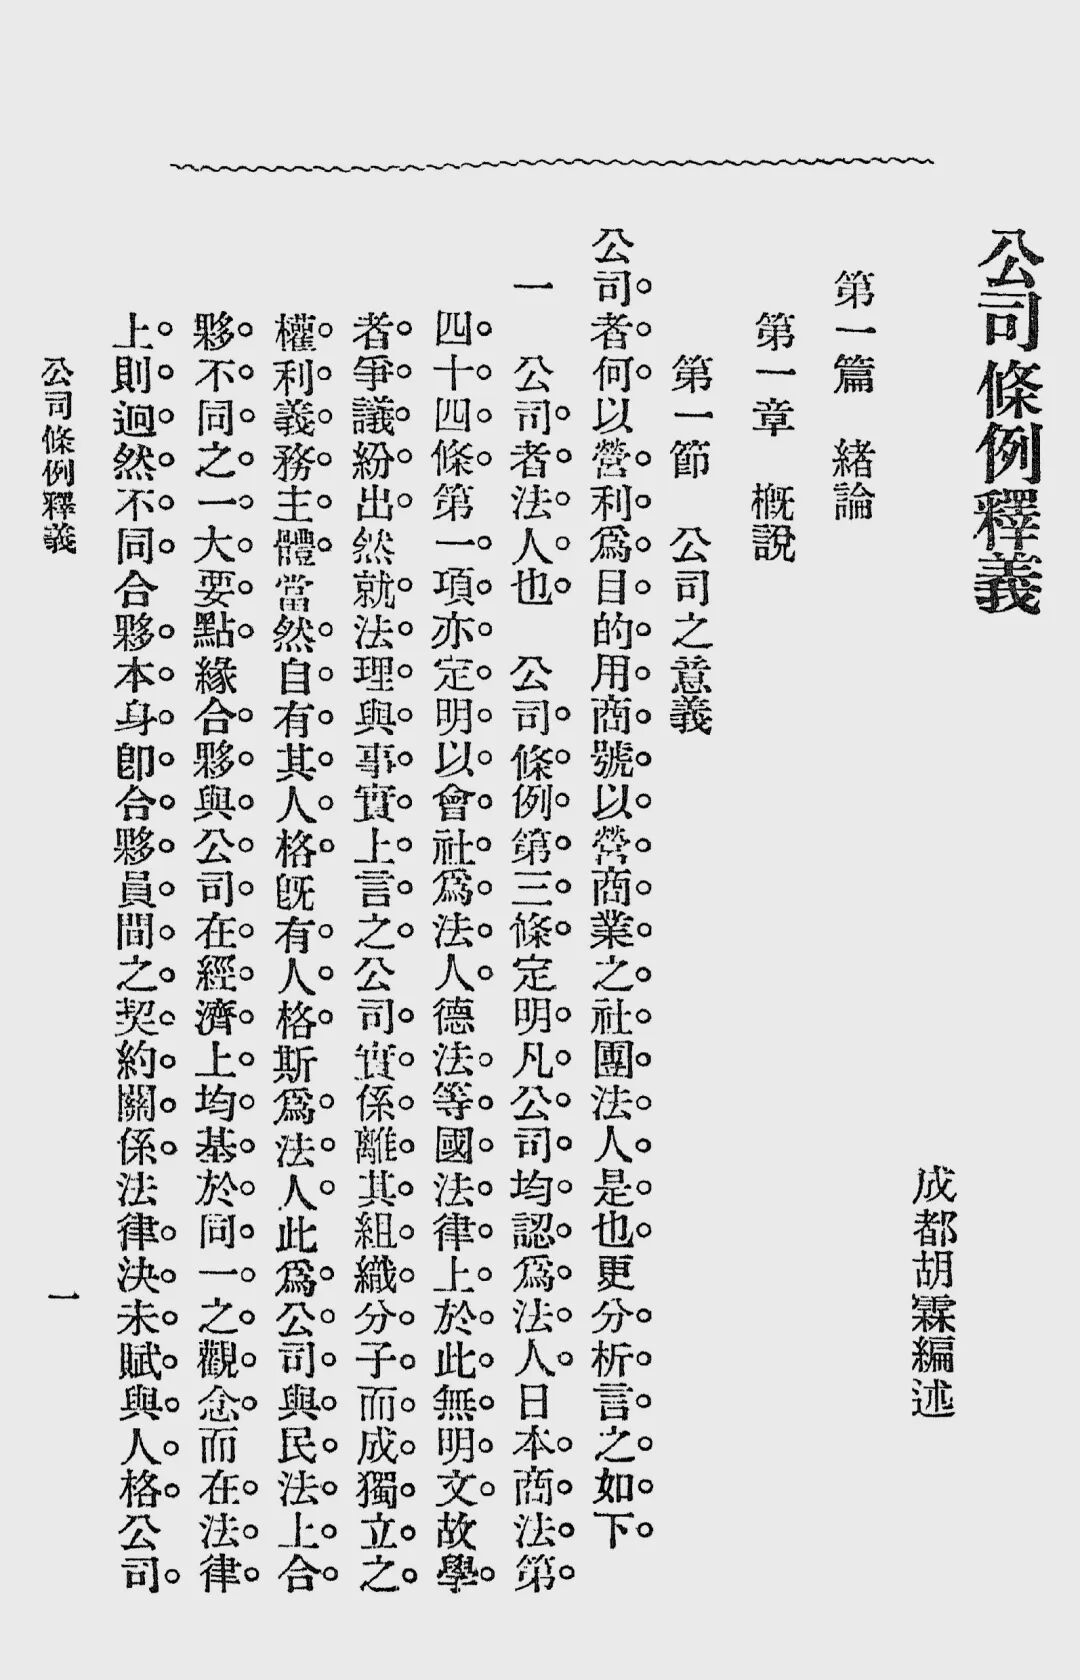 公司條例釋義
成都胡霖編述
第一篇　緒論
第一章　概說
第一節　公司之意義
公司者何以營利爲目的用商號以營商業之社團法人是也更分析言之如下
一　公司者法人也　公司條例第三條定明凡公司均認爲法人日本商法第
四十四條第一項亦定明以會社爲法人德法等國法律上於此無明文故學
者爭議紛出然就法理與事實上言之公司實係離其組織分子而成獨立之
權利義務主體當然自有其人格旣有人格斯爲法人此爲公司與民法上合
夥不同之一大要點緣合夥與公司在經濟上均基於同一之觀念而在法律
上則迥然不同合夥本身卽合夥員間之契約關係法律決未賦與人格公司
公司條例釋義
一